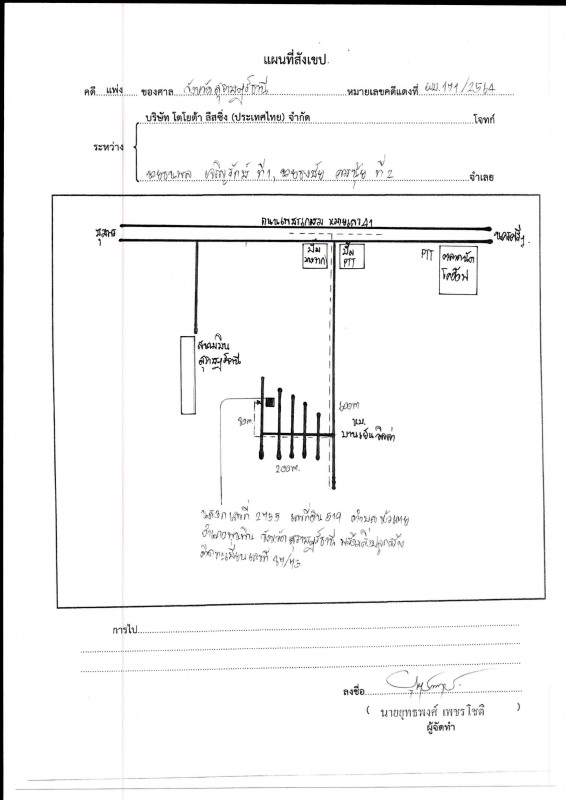 แผนที่สังเขป
คดี แพ่ง ของศาล จังหวัดสุราษฎร์ธานี หมายเลขคดีแดงที่ ผบ.171/2564
บริษัท โตโยต้า ลีสซิ่ง (ประเทศไทย) จำกัด โจทก์
ระหว่าง
นายธนพล เจริญรักษ์ ที่ 1, นายธงชัย ที่ 2 จำเลย
ถนนเพชรเกษม หมายเลข 41
ชุมพร
นครศรีฯ
ปั๊ม
ปั๊ม
PTT
PTT
ตลาดนัด
โลตัส
สนามบิน
สุราษฎร์ธานี
600m
80m
หมู่บ้าน
200m.
โฉนดเลขที่ 2755 เลขที่ดิน 819 ตำบลหัวเตย
อำเภอพุนพิน จังหวัดสุราษฎร์ธานี พร้อมสิ่งปลูกสร้าง
ติดทะเบียนเลขที่ 87/73
การไป
ลงชื่อ
( นายยุทธพงศ์ เพชรโชติ )
ผู้จัดทำ